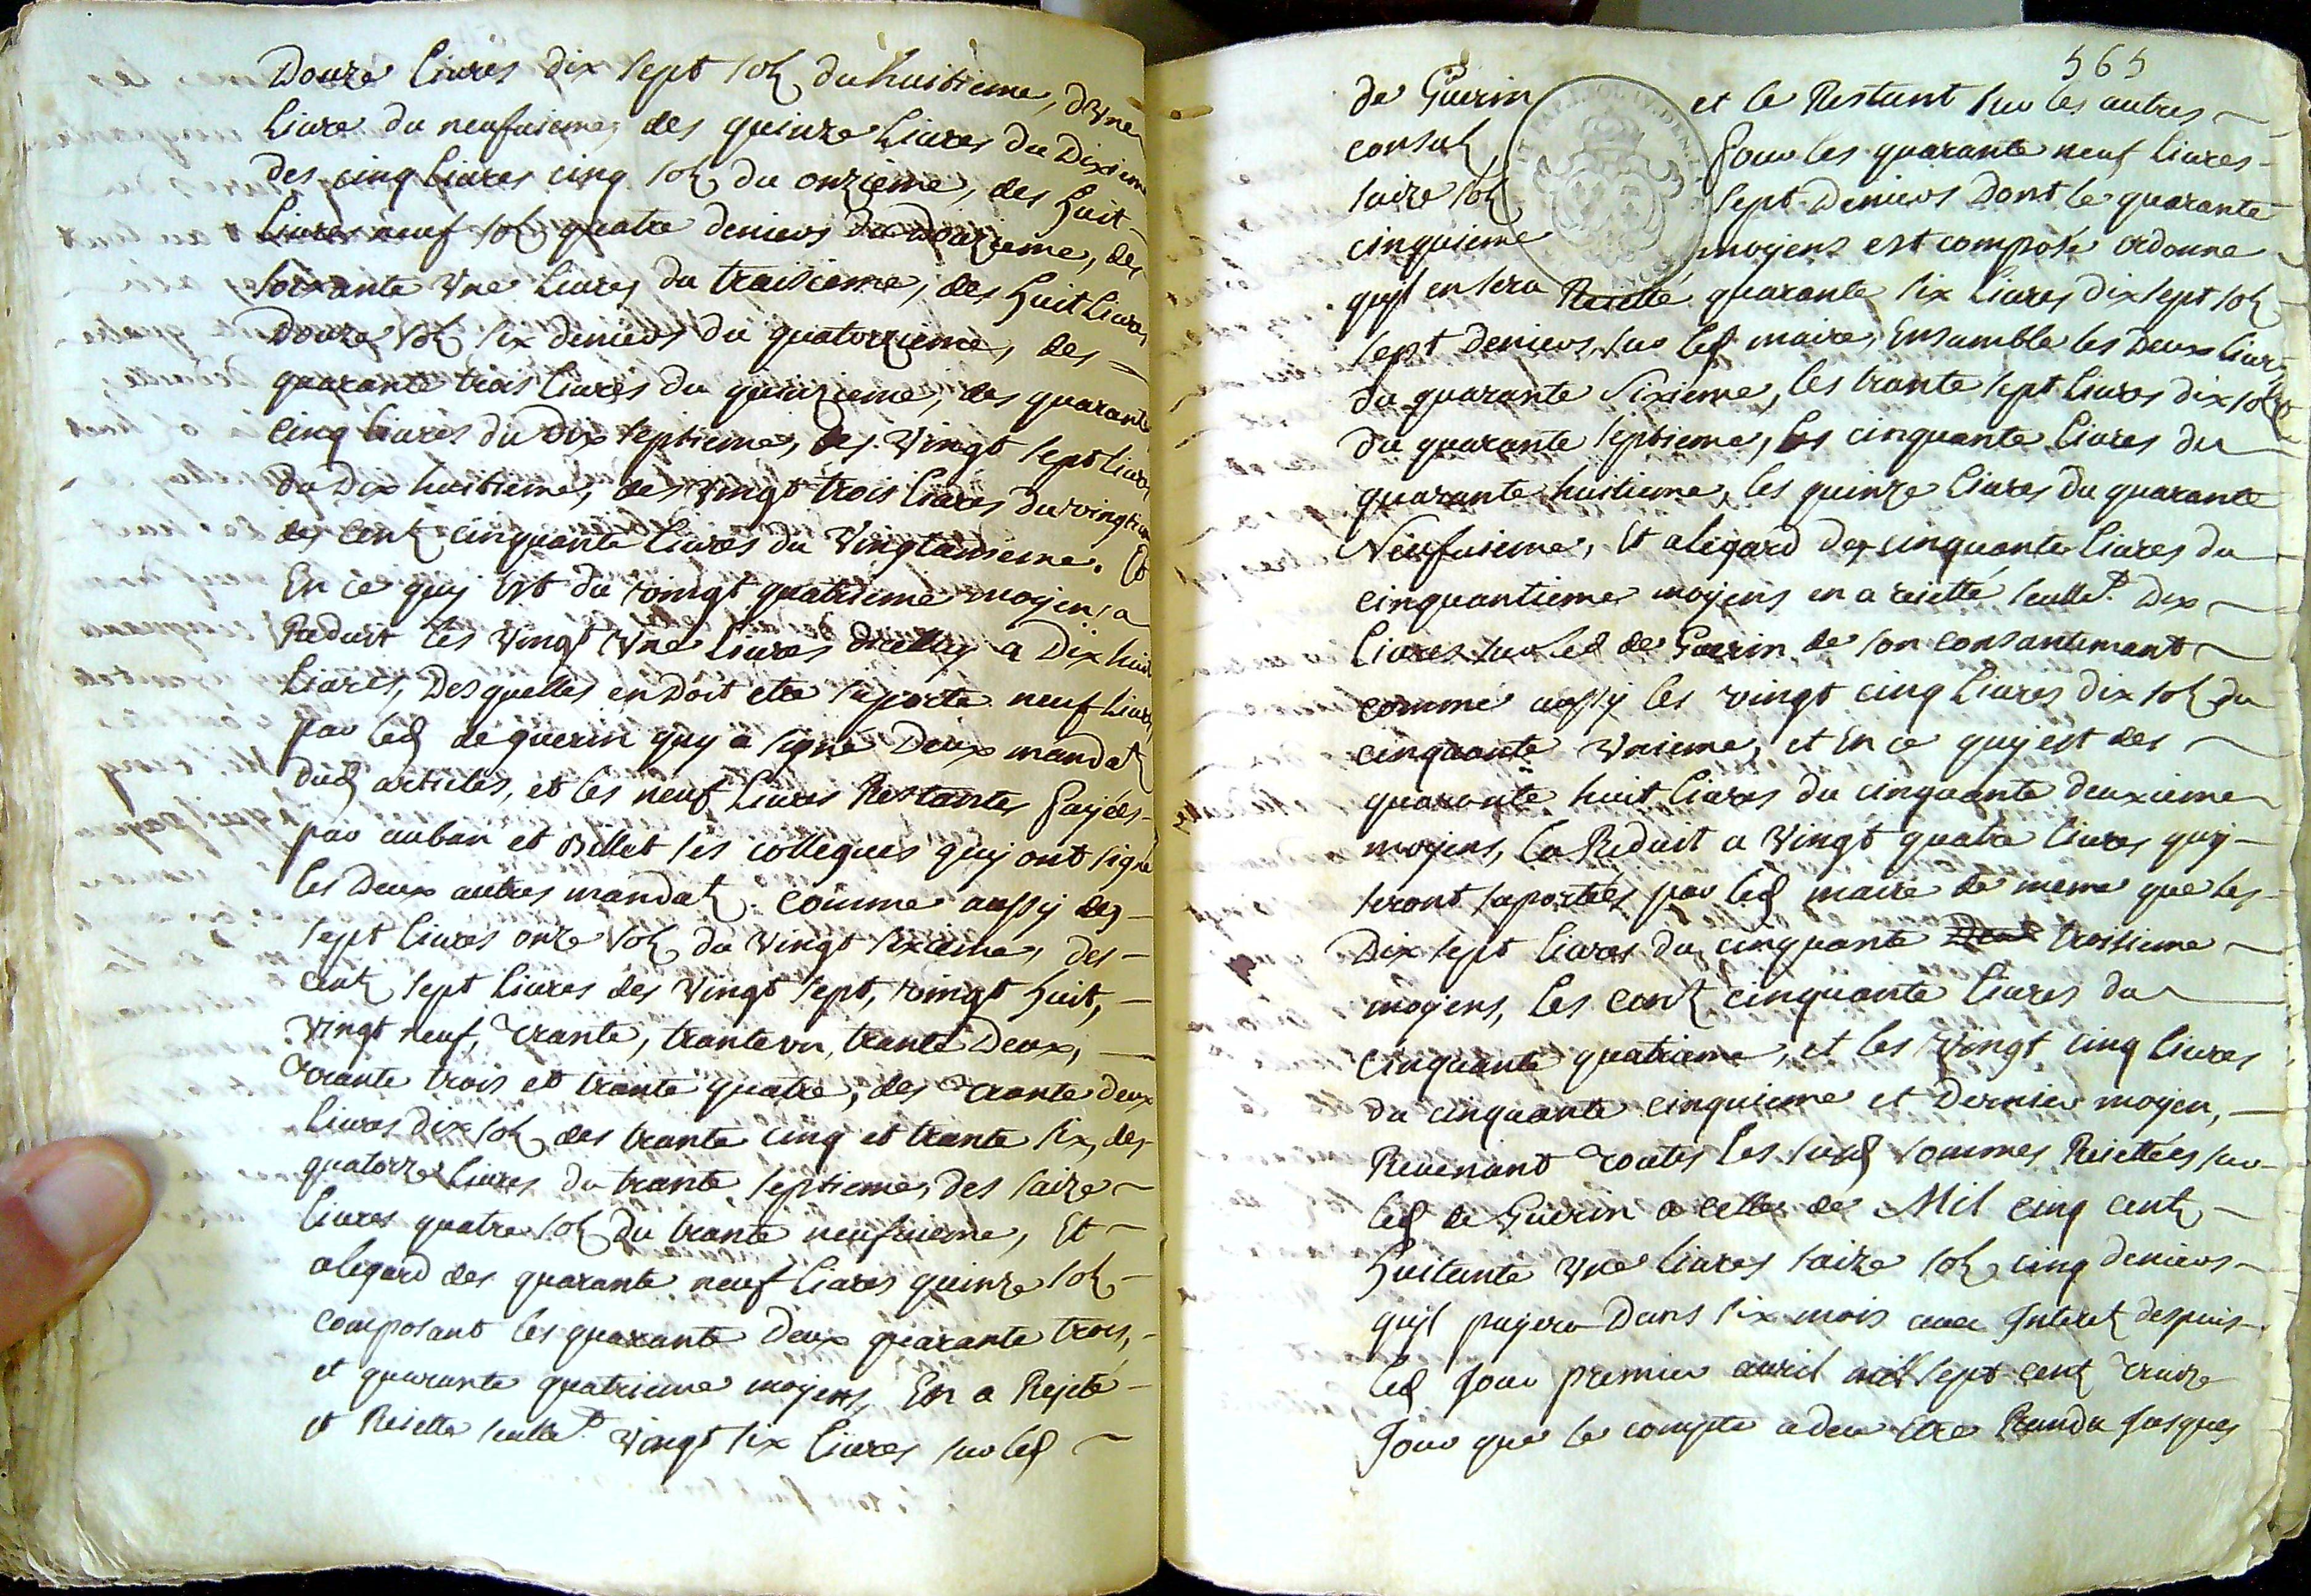 Douze livres dix sept sols du huitieme, d'une
Livre du neufuieme, des quinze Livres du Dixiem
des cinq Livres cinq sols du onzieme, des huit
Livres neuf sols quatre deniers du Douzieme, des
soixante Une Livres du traisieme, des huit Livres
Douze sols six deniers du quatorzieme, des
quarante trois Livres du quinzieme, des quarante
cinq livres du Dix septieme, des Vingt sept Livres
du Dix huitieme, des vingt trois Livres du vingtiem
des Cent cinquante Livres du Vingtunieme. Et
En ce quy est du vingt quatrieme moyen, a
Reduit les Vingt Une Livres dicelluy a Dix huit
Livres, Desquelles en doit etre suporté neuf Livres
par led de guerin quy a signé Deux mandats
dud articles, et les neuf Livres Restantes payées
par auban et Billet ses collegues quy ont signé
les Deux autres mandats. comme aussy des
sept livres onze sols du Vingt sixieme, des
cent sept Livres des Vingt sept, vingt huit,
Vingt neuf, trante, trante un, trante Deux,
trante trois et trante quatre, des trante deux
Livres dix sols des trante cinq et trante six, des
quatorze Livres du trante septieme, des saize
Livres quatre sols du trante neufuieme, Et
alegard des quarante neuf Livres quinze sols
composant les quarante Deux quarante trois,
et quarante quatrieme moyens, En a Rejeté
et Reiette seullet vingt six Livres sur led
565
de Guerin et le Restant sur les autres
consuls, pour les quarante neuf Livres
saize sols sept Deniers Dont le quarante
cinquieme moyens est composé ordonne
quyl en sera Reietté quarante six Livres dix sept sols
sept deniers sur led maire, Ensamble les Deux Livres
du quarante sixieme, les trante sept Livres dix sols
du quarante septieme, les cinquante Livres du
quarante huitieme, les quinze Livres du quarante
Neufuieme, Et alegard des cinquante Livres du
cinquantieme moyens en a reietté seullet Dix
Livres sur led de Guerin de son consantemant
comme aussy les vingt cinq Livres dix sols du
cinquante Unieme, et En ce quy est des
quarante huit Livres du cinquante deuxieme
moyens, les Reduit a Vingt quatre livres quy
seront suportées par led maire de meme que les
Dix sept livres du cinquante Deux troisieme
moyens, les cent cinquante Livres du
cinquante quatrieme, et les Vingt cinq Livres
du cinquante cinquieme et Dernier moyen,
Reuenant toutes les susd sommes Reiettées sur
led de Guerin a celle de Mil cinq cents
huitante Une livres saize sols cinq deniers
quyl payera Dans six mois avec Interet despuis
led jour premier auril mil sept cent traize
Jour que le compte a deu etre Randu jusques